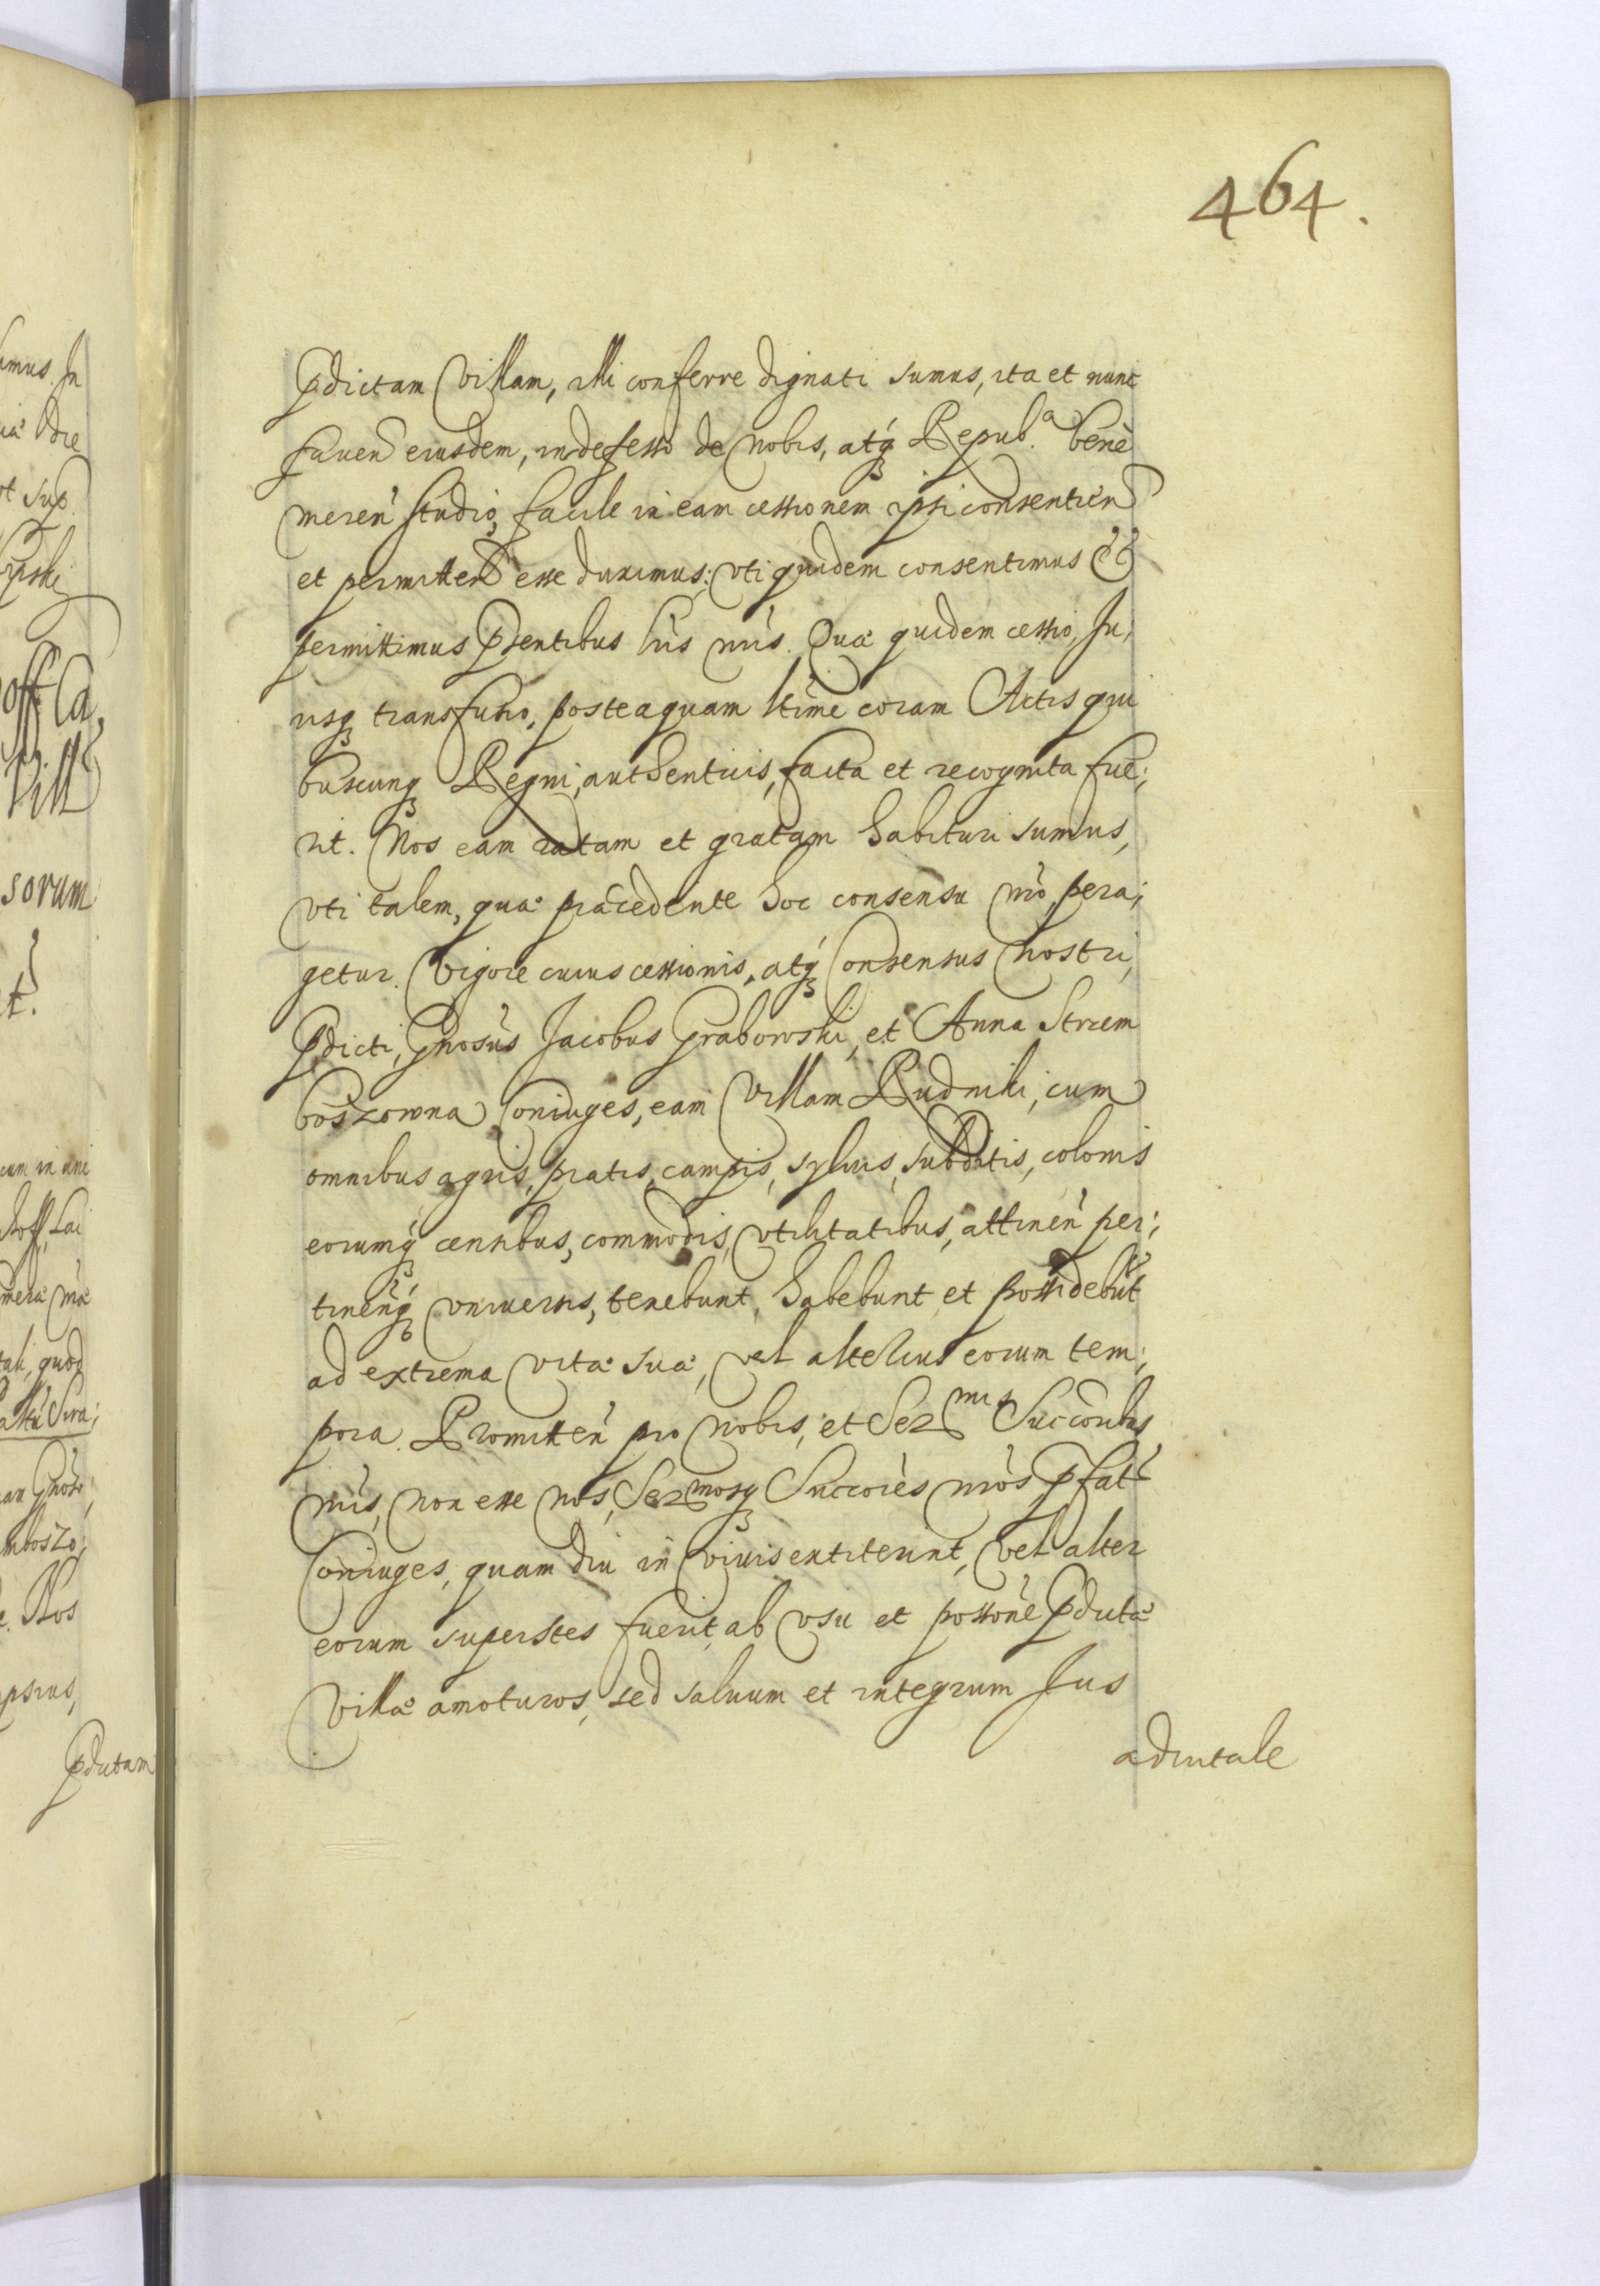 464.
pdictam Villam, illi conferre dignati sumus, ita et nunc
fauen eiusdem, indefesso de Nobis, atq Repub.a benè
meren studio, facile in eam cessionem ipsi consentien
et permitten esse duximus; vti quidem consentimus et
permittimus pñtentibus lris nris. Qua quidem cessio, Ju,
risq transfusio, posteaquam ltime coram Actis qui
buscunq Regni, authenticis, facta et recognita fue,
rit. Nos eam ratam et gratam habituri sumus,
vti talem, qua præcedente hoc consensu nro, pera,
getur. Vigore cuius cessionis, atq Consensus Nostri,
pdicti, Gnosus Jacobus Grabowski, et Anna Strzem
boszowna Coniuges, eam Villam Rudniki, cum
omnibus agris, pratis, campis, syluis, subditis, colonis
eorumq censibus, commodis, vtilitatibus, attinen per,
tinenq vniuersis, tenebunt, habebunt et possidebut
ad extrema vitæ suæ, vel alterius eorum tem,
pora. Promitten pro Nobis, et Sermis Succoribus
nris, Non esse nos, Sermosq Succores nros, pfat
Coniuges, quam diu in Viuis extiterint, Vel alter
eorum superstes fuerit, ab vsu et possone pdictæ
Villæ amoturos, sed saluum et integrum Jus
aduitale
sorum
quod
Nos
ipsius,
pdictam